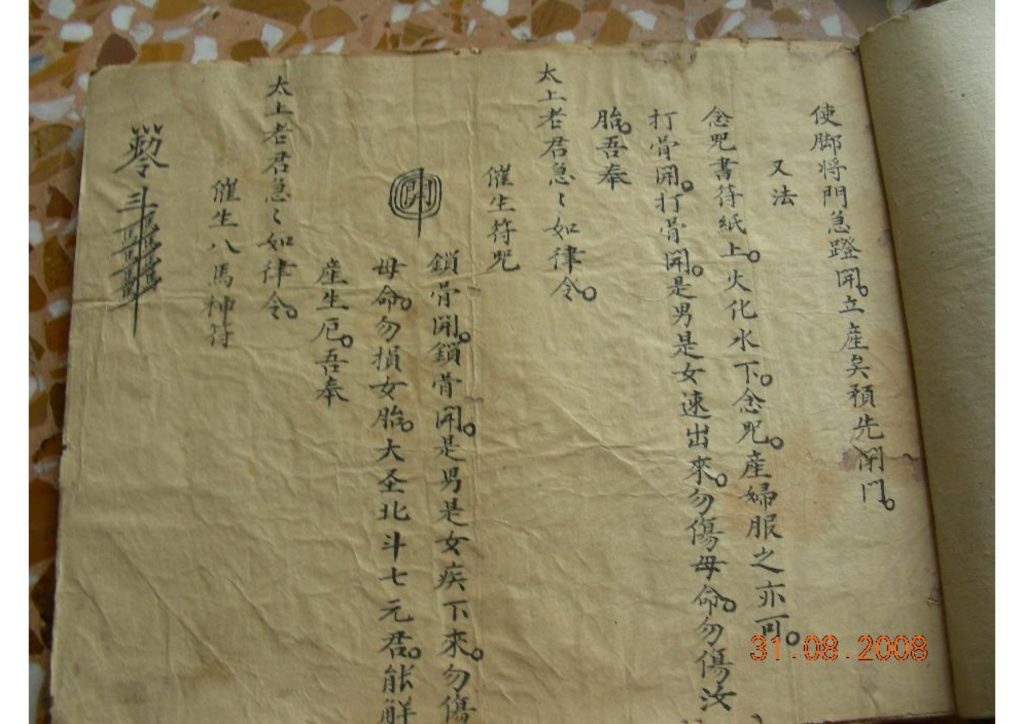 使脚将門急蹬開。立産矣預先開門。
又法
念咒書符紙上。火化水下。念咒。産婦服之亦可。
打骨開。打骨開。是男是女速出來。勿傷母命。勿傷汝
胎。吾奉
太上老君急〻如律令。
催生符咒
鎖骨開。鎖骨開。是男是女疾下來。勿傷
母命。勿損女胎。大圣北斗七元君。能解
産生厄。吾奉
太上老君急〻如律令。
催生八馬神符
31.08.2008